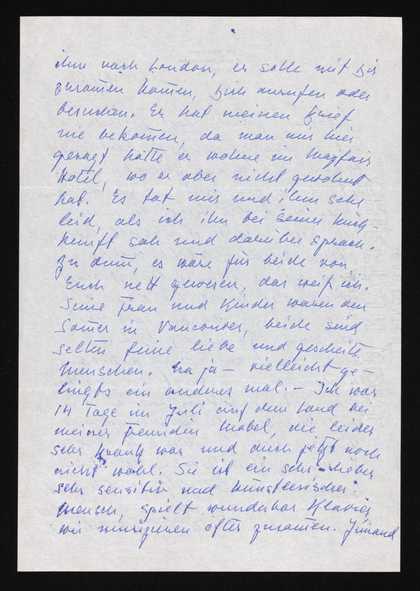 ihm nach London, er solle mit Dir
zusamen kommen, Dich anrufen oder
besuchen. Er hat meinen Brief
nie bekommen, da man mir hier
gesagt hätte er wohne im Mayfair
Hotel, wo er aber nicht gewohnt
hat. Es tat mir und ihm sehr
leid, als ich ihn bei seiner Rück-
kunft sah und darüber sprach.
Zu dumm, es wäre für beide von
Euch nett gewesen, das weiss ich.
Seine Frau und Kinder waren den
Somer in Vancouver, beide sind
selten feine liebe und gescheite
Menschen. Na ja – vielleicht ge-
lingts ein anderes mal. – Ich war
14 Tage im Juli auf dem Land bei
meiner Freundin Mabel, die leider
sehr krank war und auch jetzt noch
nicht wohl. Sie ist ein sehr lieber
sehr sensitiv und künstlerischer
Mensch, spielt wunderbar Klavier
wir musizieren öfter zusamen. Jemand